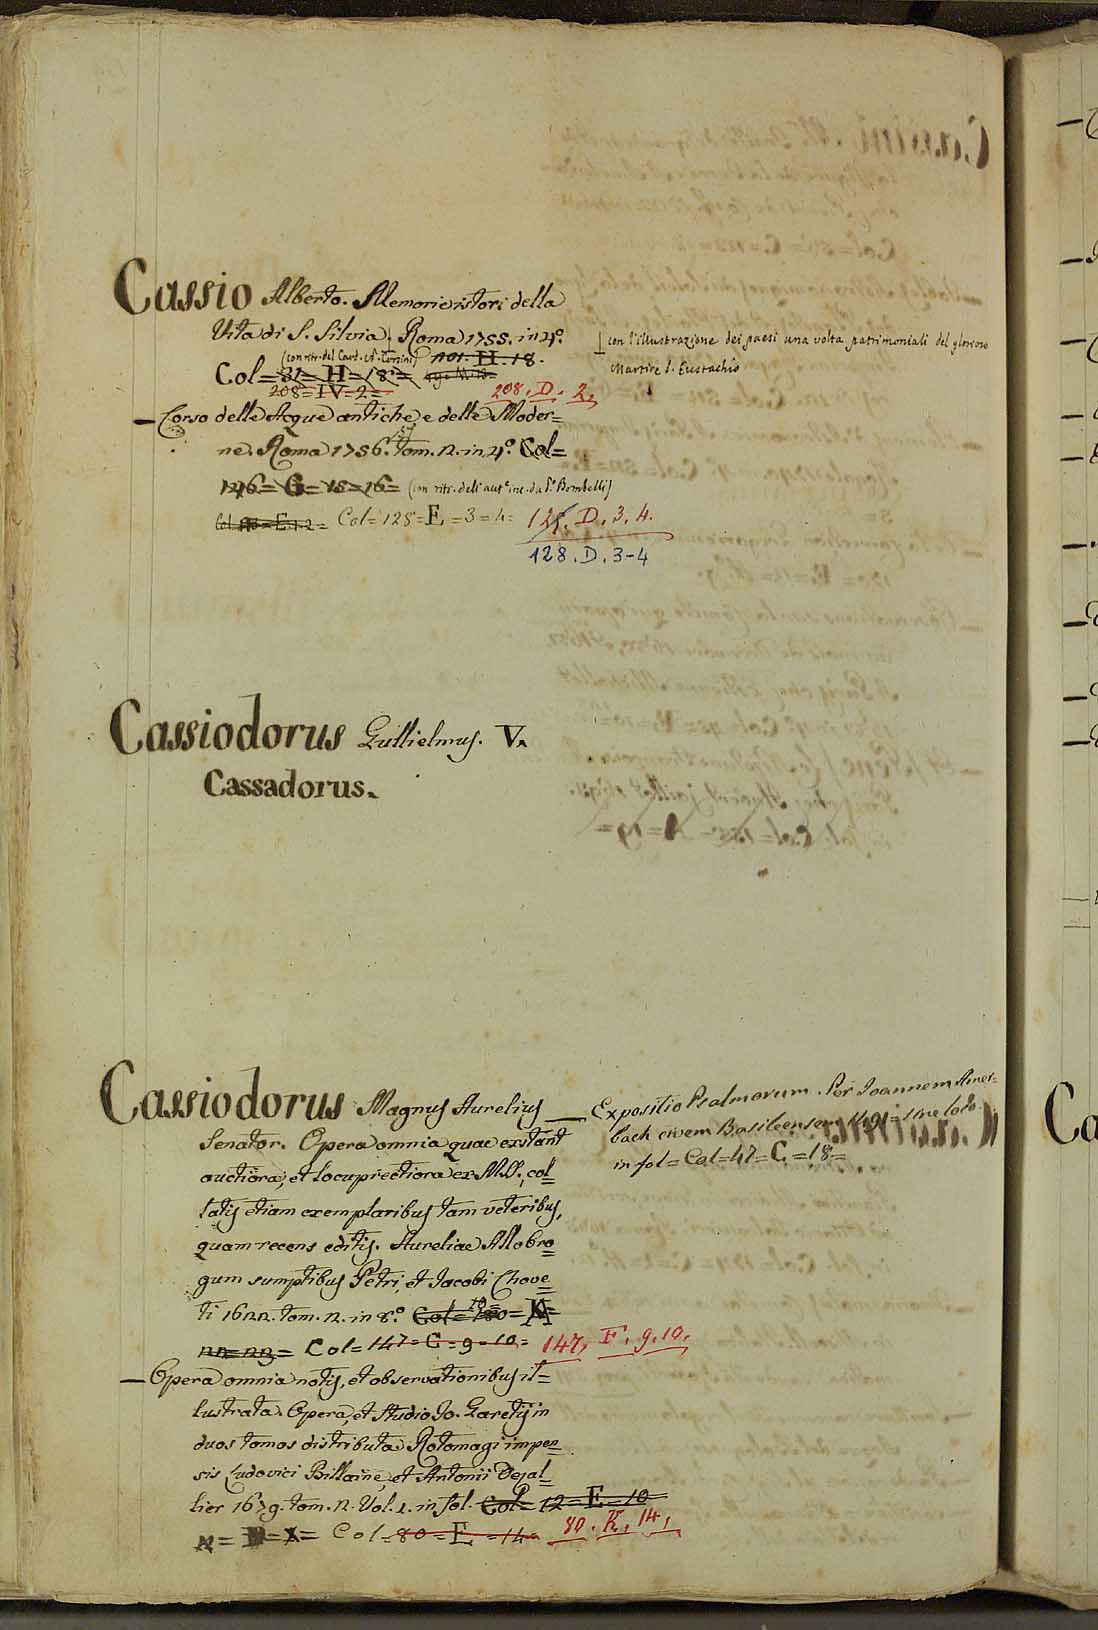 Cassio Alberto. Memorie istori della
Vita di S. Silvia. Roma 1755. in 4°.
[con l'illustrazione dei paesi una volta patrimoniali del glorioso
Martire S. Eustachio
(con ritr. del Card. N. Corsini) H. 18.
Col = 81 = H = 18 =
208 = IV = 2 =
208. D. 2,
— Corso delle Acque antiche, e delle Moder=
ne. Roma 1756. tom. 2. in 4°. Col =
146 = G = 15 = 16 = (con ritr. dell'aut.e inc. da P.o Bombelli)
Col = E 1 2 = Col = 128 = E = 3 = 4 = 128. D. 3. 4.
128. D. 3-4
Cassiodorus Gullielmus. V.
Cassadorus.
Cassiodorus Magnus Aurelius
Senator. Opera omnia quae extant
auctiora, et locupretiora ex MSS., col=
latis etiam exemplaribus tam veteribus,
quam recens editis. Aureliae Allobro=
gum sumptibus Petri, et Jacobi Chove=
ti 1622. tom. 2. in 8°. Col = 130 =
22 = 23 = Col = 147 = C = 9 = 10 = 147, F. 9. 10,
— Opera omnia notis, et observationibus il=
lustrata. Opera, et Studio Jo. Garetij in
duos tomos distributa. Rotomagi impen=
sis Ludovici Billaine, et Antonii Dezal=
lier 1679. tom. 2. Vol. 1. in fol. Col = 12 = E = 10
Col = 80 = E = 14 = 80. K, 14,
— Expositio Psalmorum. Per Joannem Amer=
bach civem Basileensem 1491 = sine loco
in fol = Col = 47 = C = 18 =